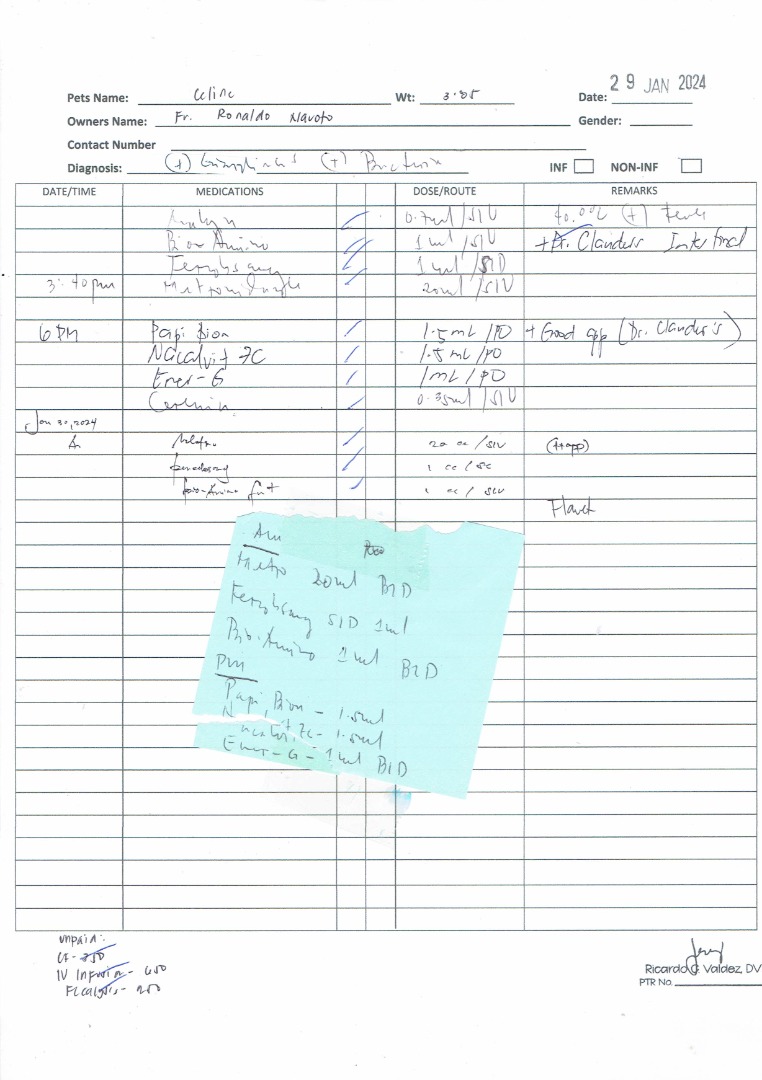 29 JAN 2024
Pets Name: Celine Wt: 3.85 Date:
Owners Name: Fr. Ronaldo Navoto Gender:
Contact Number
Diagnosis: (+) (+) Bacteria INF NON-INF
DATE/TIME MEDICATIONS DOSE/ROUTE REMARKS
0.7ml /SIV 40.00c (+) fever
Bio-Amino 1 ml /SIV + Dr. Clauders Intestinal
Ferrobsang 1 ml /SID
3:40pm Metronidazole 20ml /SIV
6PM Papi Bion 1.5mL /PO + Good app (Dr. Clauder's)
Nacalvit FC 1.5mL /PO
Ener-G 1mL / PO
Cerenia 0.35ml /SIV
Jan 30, 2024
A Metro. 20 cc / SIV (+app)
1 cc / sc
Bio-Amino 1 cc / SIV
Am
Metro 20ml BID
Ferrobsang SID 1ml
Bio-Amino 1ml BID
Pm
Papi, Bion - 1.5ml
1.5ml
Ener-G - 1ml BID
unpaid:
CF - 350
IV Infusion - 650
Fecalysis - 250
Ricardo G. Valdez, DV
PTR No.